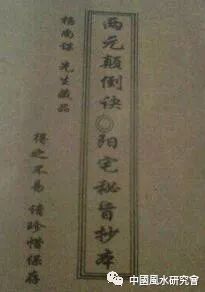 两元颠倒诀◎阳宅秘旨抄本
先生藏品
得之不易 请珍惜保存
中國風水研究會